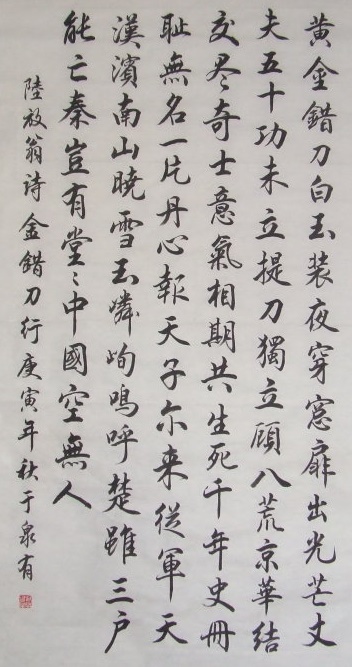 黄金錯刀白玉装夜穿窓扉出光芒丈
夫五十功未立提刀獨立顧八荒京華結
交盡奇士意氣相期共生死千年史冊
耻無名一片丹心報天子尔来從軍天
漢濱南山曉雪玉嶙峋嗚呼楚雖三户
能亡秦豈有堂〻中國空無人
陸放翁诗金錯刀行庚寅年秋于泉有